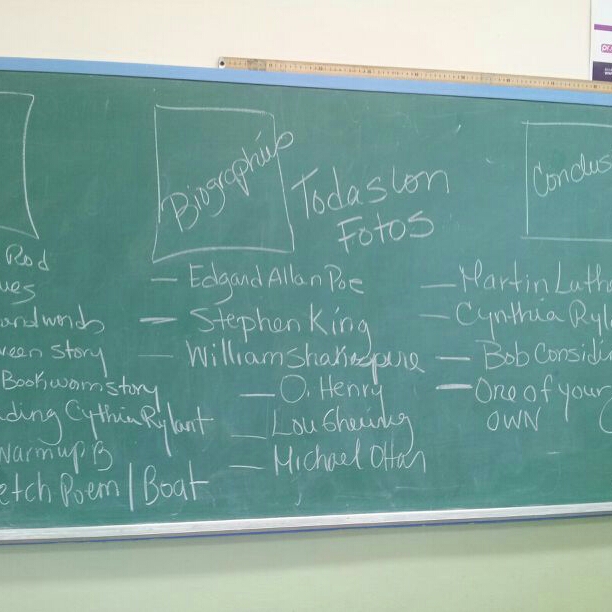 Biographies
Todas con
Fotos
Conclus
Rod
ues
and words
ween story
Bookwormstory
ding Cythia Rylant
Warmup B
etch Poem / Boat
— Edgard Allan Poe
— Stephen King
— William Shakespure
— O. Henry
— Lou Gherning
— Michael Ottah
— Martin Luthe
— Cynthia Ryl
— Bob Considi
— One of your
OWN